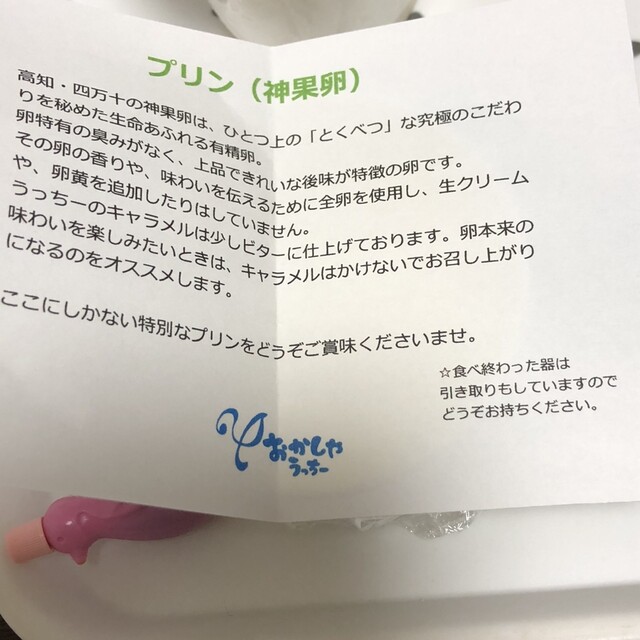 プリン（神果卵）
高知・四万十の神果卵は、ひとつ上の「とくべつ」な究極のこだわ
りを秘めた生命あふれる有精卵。
卵特有の臭みがなく、上品できれいな後味が特徴の卵です。
その卵の香りや、味わいを伝えるために全卵を使用し、生クリーム
や、卵黄を追加したりはしていません。
うっちーのキャラメルは少しビターに仕上げております。卵本来の
味わいを楽しみたいときは、キャラメルはかけないでお召し上がり
になるのをオススメします。
ここにしかない特別なプリンをどうぞご賞味くださいませ。
☆食べ終わった器は
引き取りもしていますので
どうぞお持ちください。
おかしや
うっちー